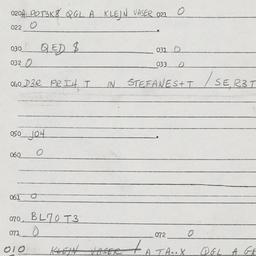 020 A POT3K8 QGL A KLEJN VASER 021 0
022 0
030 QED $ 031 0
032 0 033 0
040 D3R PRIH,T IN STEFANES+T / SE,R3T
050 J04
060 0
061 0
070 BL70 T3
071 0 072 0
010 KLEJN VASER / A TA..X QGL A GE